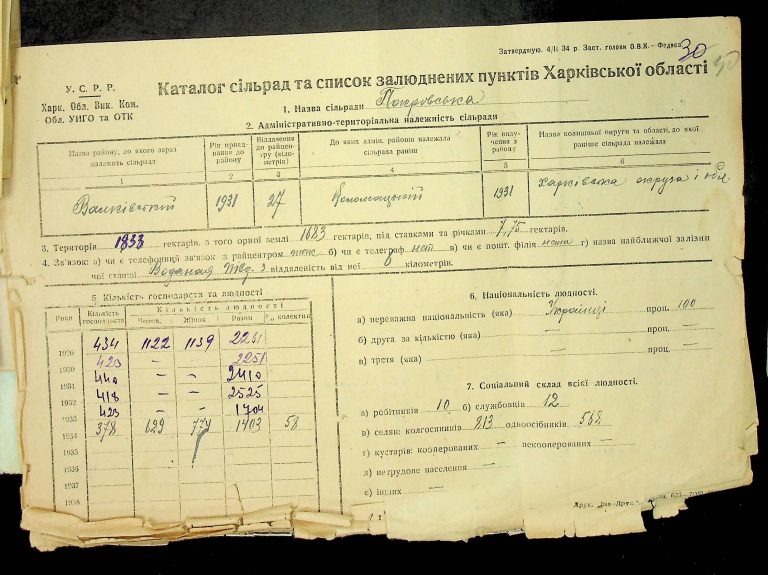 Затверджую. 4/II 34 р. Заст. голови О.В.К.—Федяєв
30
30
У. С. Р. Р.
Харк. Обл. Вик. Ком.
Обл. УНГО та ОТК
Каталог сільрад та список залюднених пунктів Харківської області
1. Назва сільради Покровська
2. Адміністративно-територіальна належність сільради
Назва району, до якого зараз належить сільрада
Рік приєднання до району
Віддалення до райцентру (кілометрів)
До яких адмін. районів належала сільрада раніш
Рік вилучення з району
Назва колишньої округи та області, до якої раніше сільрада належала
1 2 3 4 5 6
Валківський 1931 27 Коломацький 1931 Харківська округа і обл.
3. Територія 1833 гектарів, з того орної землі 1683 гектарів, під ставками та річками 7,75 гектарів.
4. Зв'язок: а) чи є телефонний зв'язок з райцентром б) чи є телеграф нет в) чи є пошт. філія нема г) назва найближчої залізничної станції Водяная Півд. З віддаленість від неї 8 кілометрів.
5 Кількість господарств та людності
Роки Кількість господарств Кількість людності
Чолов. Жінок Разом % колектив
1926 434 1122 1139 2261
1930 423 — 2251
1931 440 — — 2410
1932 418 — — 2525
1933 423 — — 1704
1934 378 629 774 1403 58
1935
1936
1937
1938
6. Національність людності.
а) переважна національність (яка) Українці проц. 100
б) друга за кількістю (яка) — проц. —
в) третя (яка) — проц. —
7. Соціальний склад всієї людності.
а) робітників 10 б) службовців 12
в) селян: колгоспників 813 одноосібників 568
г) кустарів: кооперованих — некооперованих —
д) нетрудове населення —
е) інших —